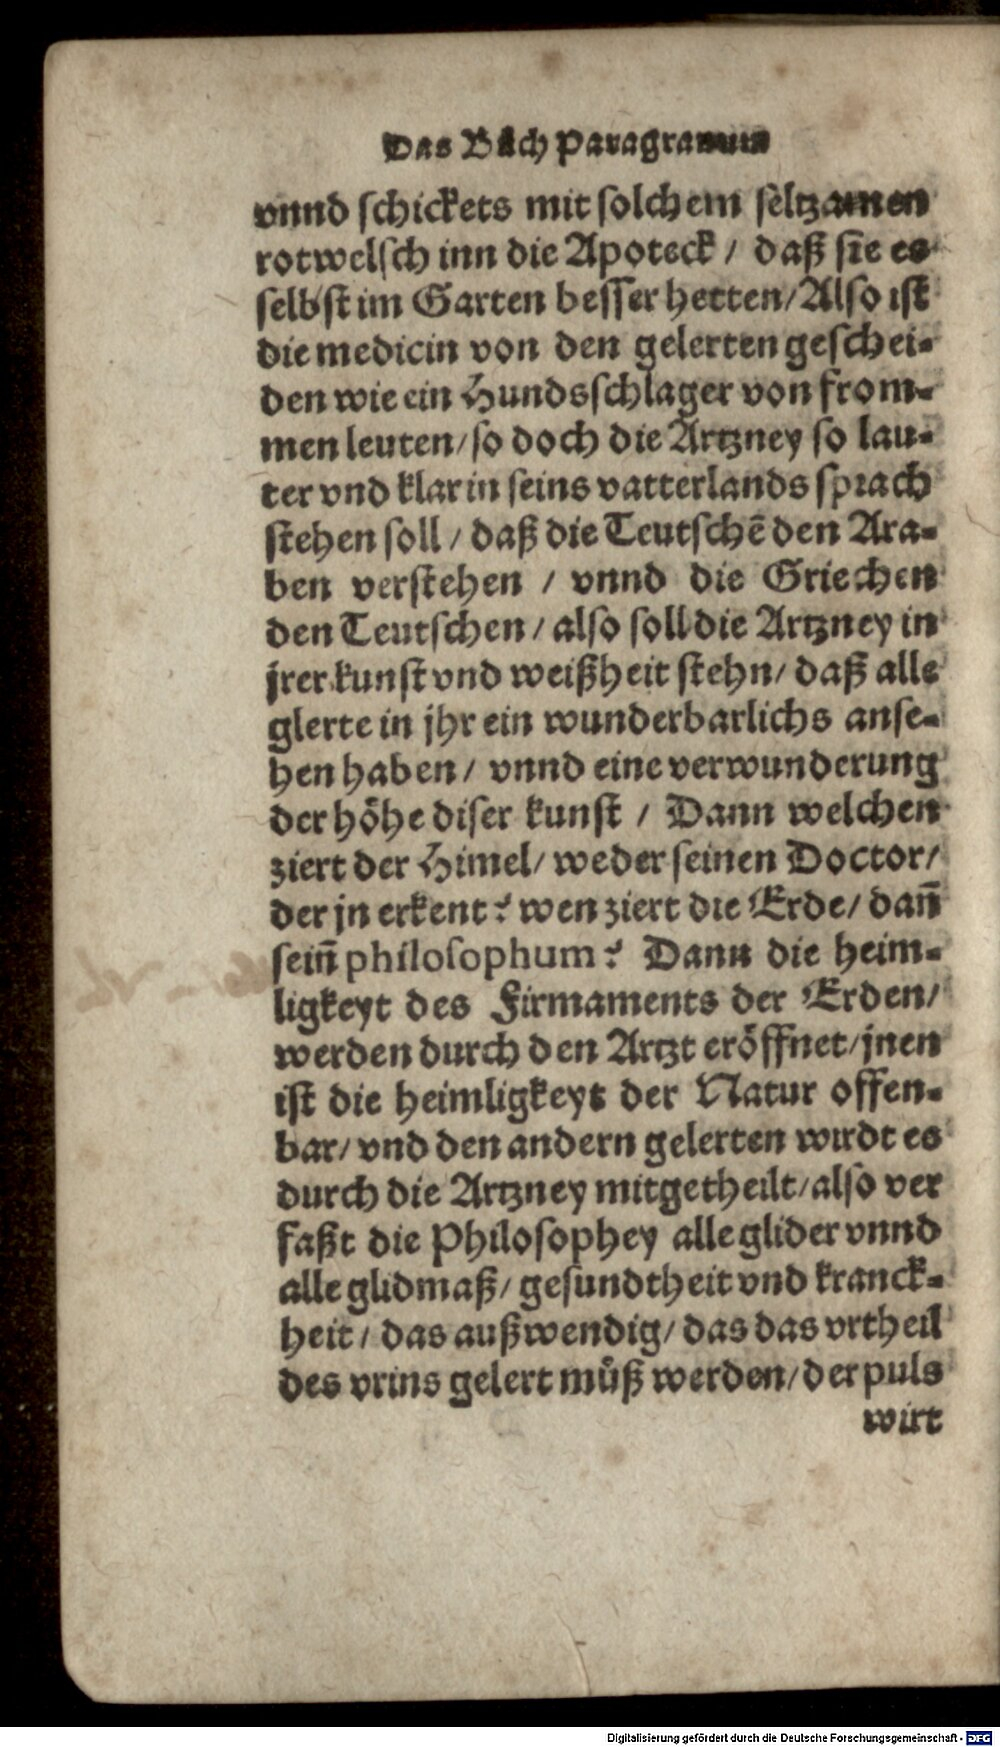 Das Bůch Paragranum
vnnd schickets mit solchem seltzamen
rotwelsch inn die Apoteck / daß sie es
selbst im Garten besser hetten/Also ist
die medicin von den gelerten geschei-
den wie ein Hundsschlager von from-
men leuten/so doch die Artzney so lau-
ter vnd klar in seins vatterlands sprach
stehen soll / daß die Teutschē den Ara-
ben verstehen / vnnd die Griechen
den Teutschen / also soll die Artzney in
jrer kunst vnd weißheit stehn/ daß alle
glerte in jhr ein wunderbarlichs anse-
hen haben / vnnd eine verwunderung
der höhe diser kunst / Dann welchen
ziert der Himel/ weder seinen Doctor/
der jn erkent? wen ziert die Erde/ dan̄
sein̄ philosophum? Dann die heim-
ligkeyt des Firmaments der Erden/
werden durch den Artzt eröffnet/jnen
ist die heimligkeyt der Natur offen-
bar/ vnd den andern gelerten wirdt es
durch die Artzney mitgetheilt/also ver
faßt die Philosophey alle glider vnnd
alle glidmaß/ gesundtheit vnd kranck-
heit / das außwendig/ das das vrtheil
des vrins gelert můß werden/der puls
wirt
Digitalisierung gefördert durch die Deutsche Forschungsgemeinschaft - DFG